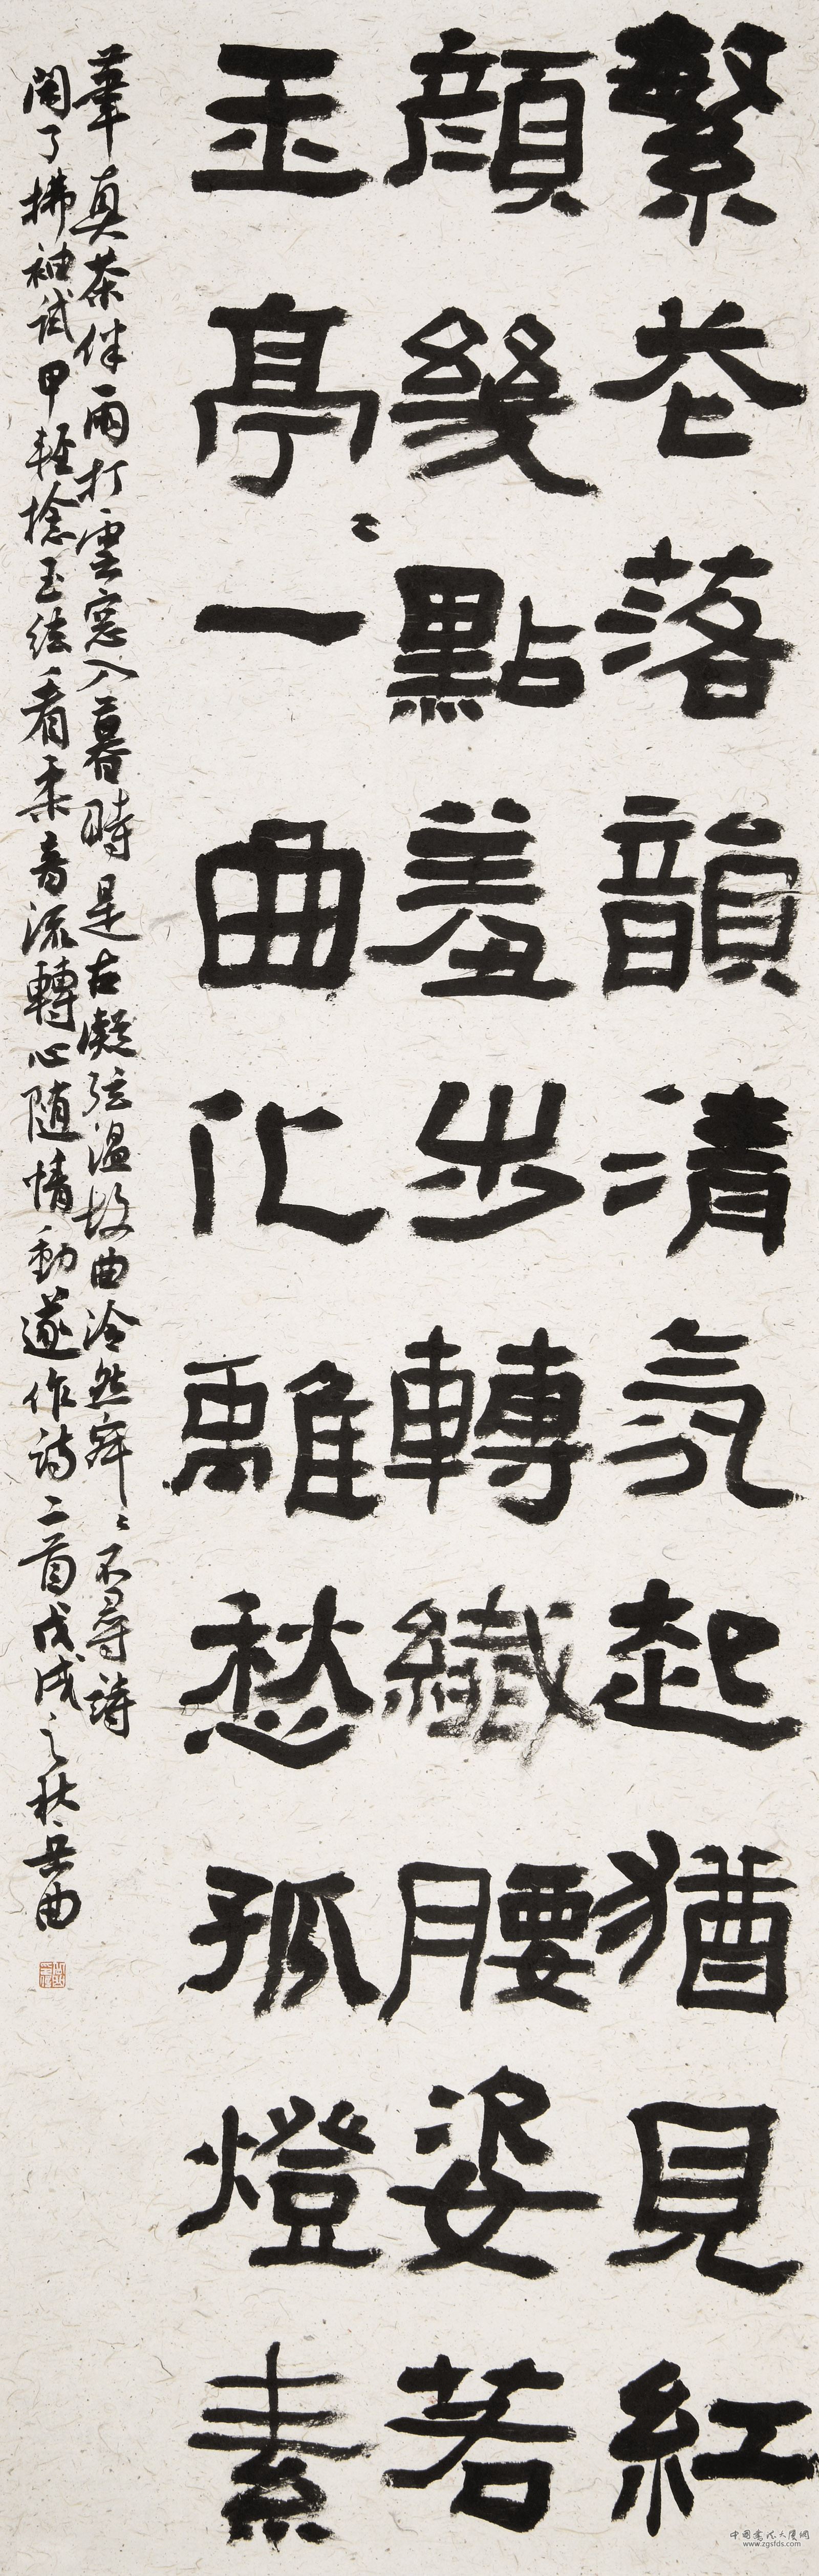 繁花落韻清氛起猶見紅
顏幾點羞步轉纖腰姿若
玉亭々一曲化離愁孤燈素
華 真茶伴雨打雲窓入暮時是古凝弦温故曲泠然 々不尋詩
閣了拂袖試甲輕捻玉弦看柔音流轉心随情動遂作詩二首戊戌之秋 曲
中国書法大厦網
www.zgsfds.com